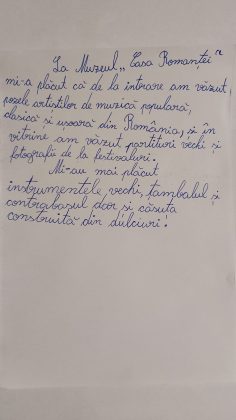 La Muzeul „Casa Romanței”
mi-a plăcut că de la intrare am văzut
pozele artiștilor de muzică populară,
clasică și ușoară din România, și în
vitrine am văzut partituri vechi și
fotografii de la festivaluri.
Mi-au mai plăcut
instrumentele vechi, țambalul și
contrabasul dar și căsuța
construită din dulciuri!